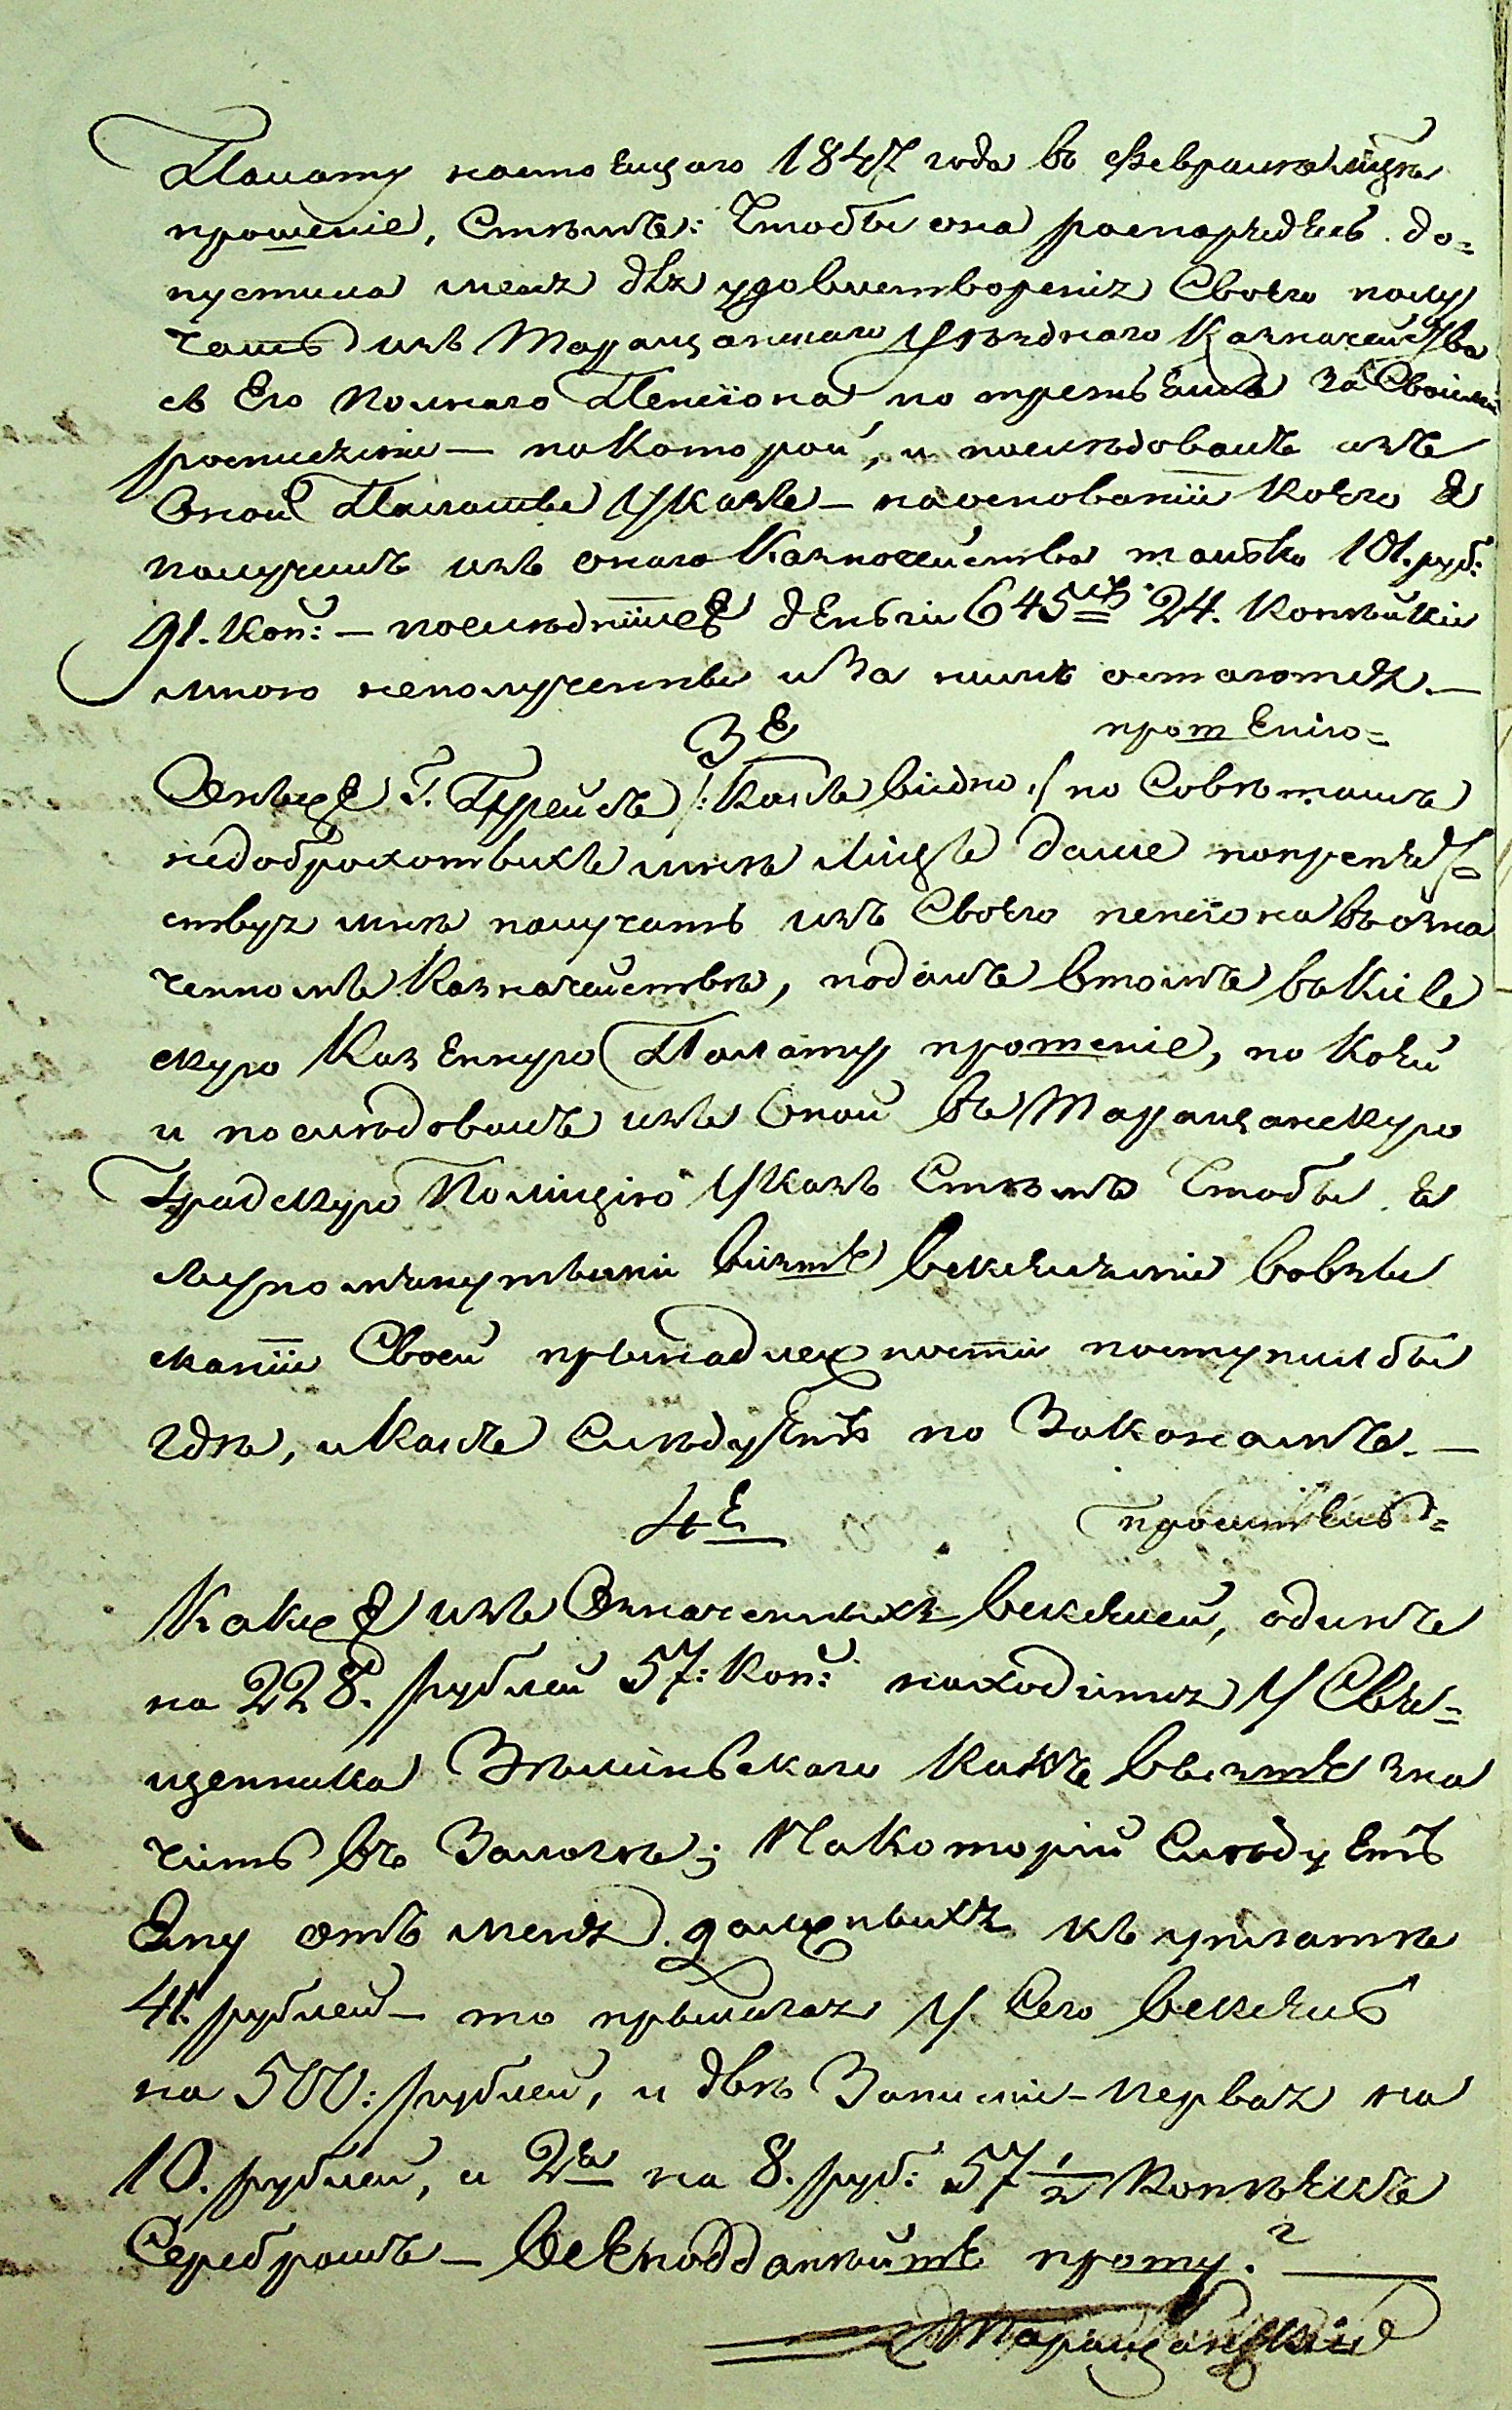 Палату настоящаго 1847 года въ Февралѣ м҃цѣ
прошеніе, Съ тѣмъ: Чтобы она распорядясь до=
пустила меня для удовлетворенія Своего полу
чать изъ Таращанскаго Уѣзднаго Казначейства
съ Его полнаго Пенсіона по третьямъ за Своими
росписками — по которой, и послѣдовалъ изъ
Оной Палаты Указъ — на основаніи коего я
получилъ изъ онаго Казначейства только 101. руб:
91. коп: — послѣднііеже деньги 645 24. копѣйки
мною неполучены и За нимъ остаются. —
3е
прошенію=
Онъже Г. Грейсъ /: Какъ видно :/ по Совѣтамъ
недоброхотныхъ мнѣ лицъ даже попрепя=
ствуя мнѣ получать изъ Своего пенсіона въ озна
ченномъ Казначействѣ, подалъ втомъ въ Кіев
скую Казенную Палату прошеніе, по коей
и послѣдовалъ изъ Оной въ Таращанскую
Градскую Полицію Указъ Съ тѣмъ Чтобы я
съ упомянутыми вишше векселями вовзы
сканіи Своей прынадлежности поступилбы
гдѣ, и какъ Слѣдуетъ по Законамъ. —
4е
Какиже изъ Означенныхъ векселей, одинъ
на 228. рублей 57: коп: находится У Свя=
щенника Зѣлиньскаго какъ вышше зна
чить въ Залогѣ; На которій Слѣдуетъ
Ему отъ меня должныхъ къ уплатѣ
41. рублей — то прылагая У Сего вексель
на 500: рублей, и двѣ Записки — первая на
10. рублей, и 2я на 8. руб: 57 1/2 копѣекъ
Серебромъ — всеподданнѣйше прошу.
Таращанскій